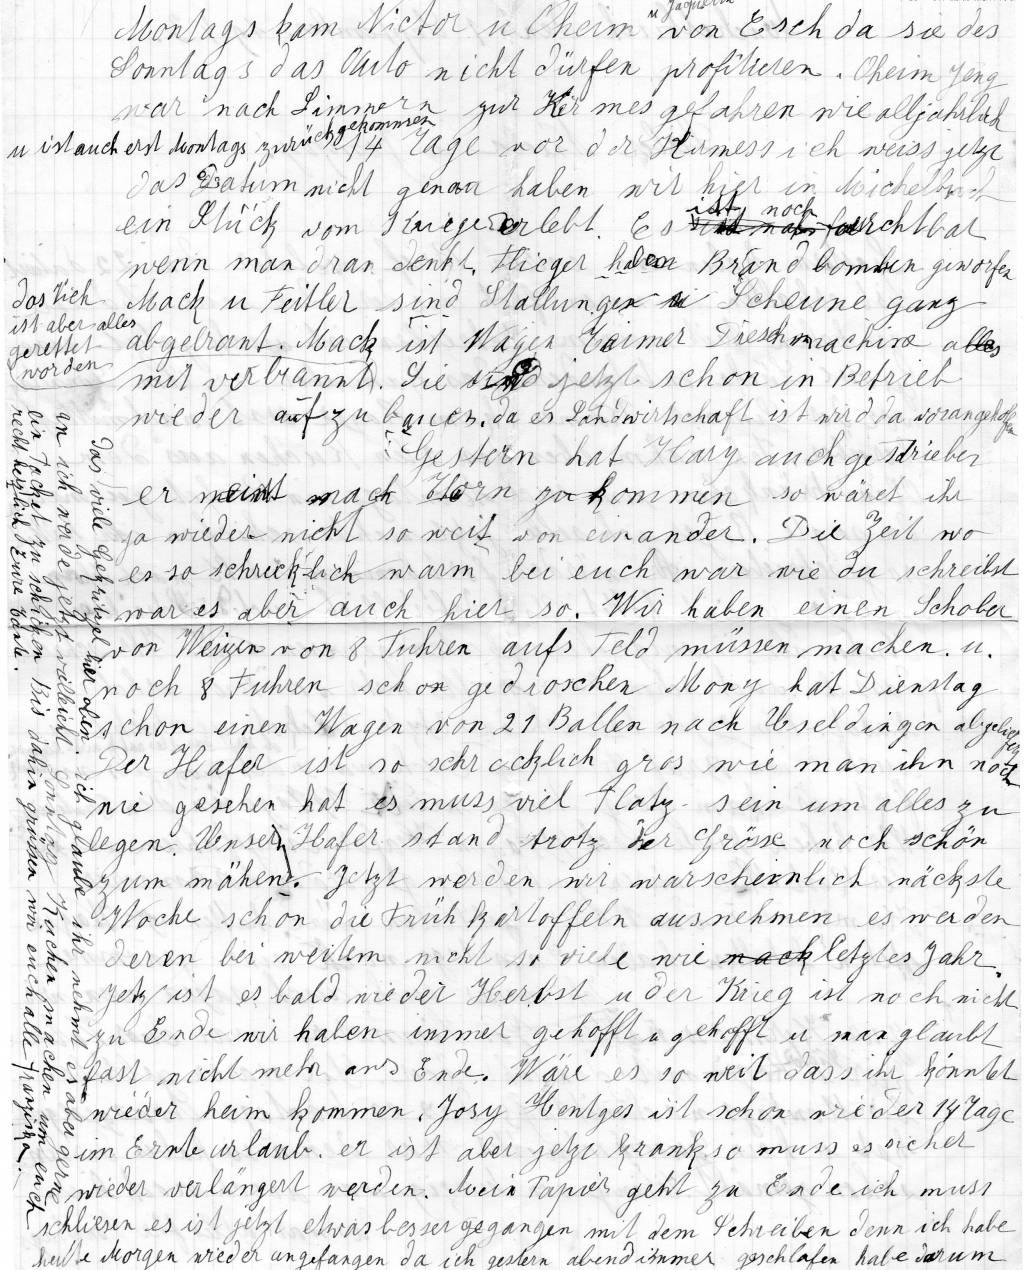 u Jaquelin
Montags kam Victor u Oheim von Esch da sie des
Sonntags das Auto nicht dürfen profitieren. Oheim Jeng
war nach Simmern zur Kermes gefahren wie alljährlich
u ist auch erst Montags zurückgekommen 14 Tage vor der Kirmess ich weiss jetzt
das Datum nicht genau haben wir hier in Michelbuch
ein Stück vom Kriege erlebt. Es ist noch furchtbar
wenn man dran denkt. Flieger haben Brand bomben geworfen
Mack u Feitler sind Stallungen u Scheune ganz
abgebrant. Mack ist Wagen Eimer Dreschmachine alles
mit verbrannt. Sie sind jetzt schon in Betrieb
das Vieh
ist aber alles
gerettet
worden
wieder aufzubauen. da es Landwirtschaft ist wird da vorangeholfen
Gestern hat Hary auch geschrieben
er meint nach Horn zu kommen so wäret ihr
ja wieder nicht so weit von einander. Die Zeit wo
es so schrecklich warm bei euch war wie du schreibst
war es aber auch hier so. Wir haben einen Schober
von Weizen von 8 Fuhren aufs Feld müssen machen. u.
noch 8 Fuhren schon gedroschen Mony hat Dienstag
schon einen Wagen von 21 Ballen nach Useldingen abgeliefert
Der Hafer ist so schrecklich gros wie man ihn noch
nie gesehen hat es muss viel Platz sein um alles zu
legen. Unser Hafer stand trotz der Grösse noch schön
zum mähen. Jetzt werden wir warscheinlich näckste
Woche schon die Frühkartoffeln ausnehmen es werden
deren bei weitem nicht so viele wie nach letztes Jahr.
Jetz ist es bald wieder Herbst u der Krieg ist noch nicht
zu Ende wir haben immer gehofft u gehofft u man glaubt
fast nicht mehr ans Ende. Wäre es so weit dass ihr könntet
wieder heim kommen. Josy Hentges ist schon wieder 14 Tage
im Ernte urlaub. er ist aber jetzt krank so muss es sicher
wieder verlängert werden. Mein Papier geht zu Ende ich muss
schliesen es ist jetzt etwas besser gegangen mit dem Schreiben denn ich habe
heute Morgen wieder angefangen da ich gestern abend immer geschlafen habe darum
das viele Gekritzel hier drin. ich glaube ihr nehmt es aber gerne
an ich werde jetzt villeicht Sonntag Kuchen machen um euch
ein Packet zu schicken Bis dahin grüssen wir euch alle
recht herzlich Eure